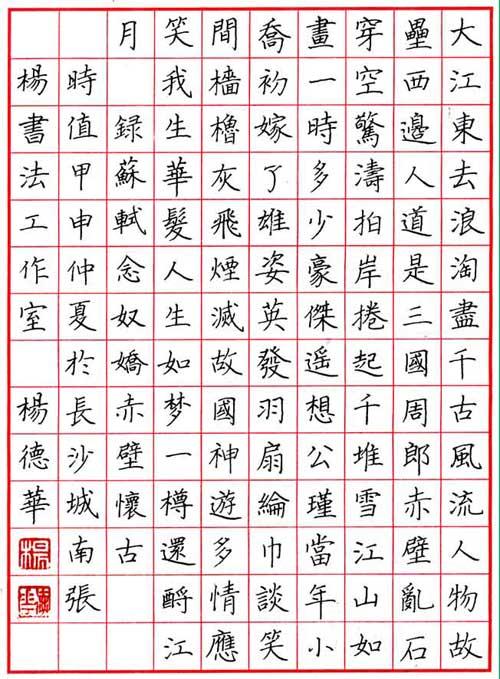 大江東去浪淘盡千古風流人物故
壘西邊人道是三國周郎赤壁亂石
穿空驚濤拍岸捲起千堆雪江山如
畫一時多少豪傑遥想公瑾當年小
喬初嫁了雄姿英發羽扇綸巾談笑
間檣櫓灰飛煙滅故國神遊多情應
笑我生華髮人生如梦一樽還酹江
月 錄蘇軾念奴嬌赤壁懷古
時值甲申仲夏於長沙城南張
楊書法工作室 楊德華
楊